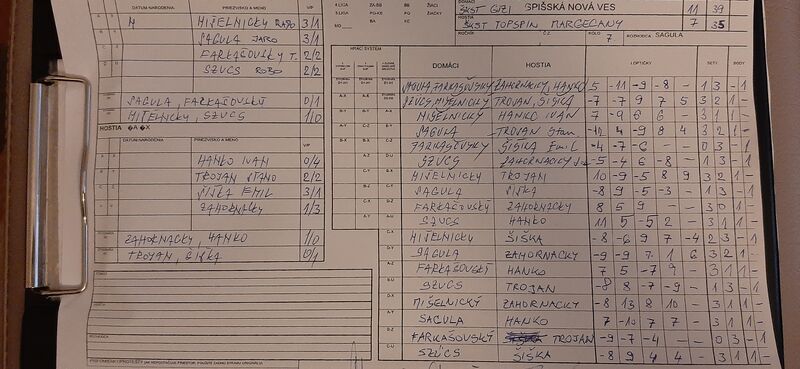 DOMÁCI
ŠKST GUZI SPIŠSKÁ NOVÁ VES 11 39
HOSTIA
ŠKST TOPSPIN MARGECANY 7 35
KOLO 7. ROZHODCA SAGULA
DÁTUM NARODENIA PRIEZVISKO A MENO V/P
MIŠELNICKY RADO 3/1
SAGULA JARO 3/1
FARKAŠOVSKÝ T. 2/2
SZUCS ROBO 2/2
SAGULA, FARKAŠOVSKÝ 0/1
MIŠELNICKY, SZUCS 1/0
HOSTIA
DÁTUM NARODENIA PRIEZVISKO A MENO V/P
HANKO IVAN 0/4
TROJAN STANO 2/2
ŠIŠKA EMIL 3/1
ZAHORNACKY 1/3
ZAHORNACKY, HANKO 1/0
TROJAN, ŠIŠKA 0/1
HRACÍ SYSTÉM
DOMÁCI HOSTIA LOPTIČKY SETI BODY
SAGULA, FARKAŠOVSKÝ ZAHORNACKY, HANKO 5 -11 -9 -8 - 1 3 - 1
SZUCS, MIŠELNICKY TROJAN, ŠIŠKA -7 -7 9 7 5 3 2 1 -
MIŠELNICKY HANKO IVAN 7 -9 6 6 - 3 1 1 -
SAGULA TROJAN Stan. -12 4 -9 8 4 3 2 1 -
FARKAŠOVSKY ŠIŠKA Emil -4 -7 -6 - - 0 3 - 1
SZUCS ZAHORNACKY -5 -4 6 -8 - 1 3 - 1
MIŠELNICKY TROJAN 10 -9 -5 8 9 3 2 1 -
SAGULA ŠIŠKA -8 9 -5 -3 - 1 3 - 1
FARKAŠOVSKÝ ZAHORNACKY 8 5 9 - - 3 0 1 -
SZUCS HANKO 11 5 -5 2 - 3 1 1 -
MIŠELNICKY ŠIŠKA -8 -6 9 7 -4 2 3 - 1
SAGULA ZAHORNACKY -9 -9 7 1 6 3 2 1 -
FARKAŠOVSKÝ HANKO 7 5 -7 9 - 3 1 1 -
SZUCS TROJAN -8 8 -7 -9 - 1 3 - 1
MIŠELNICKÝ ZAHORNACKY -8 13 8 10 - 3 1 1 -
SAGULA HANKO 7 -10 7 7 - 3 1 1 -
FARKAŠOVSKÝ TROJAN -9 -7 -4 - - 0 3 - 1
SZÚCS ŠIŠKA -8 9 4 4 - 3 1 1 -